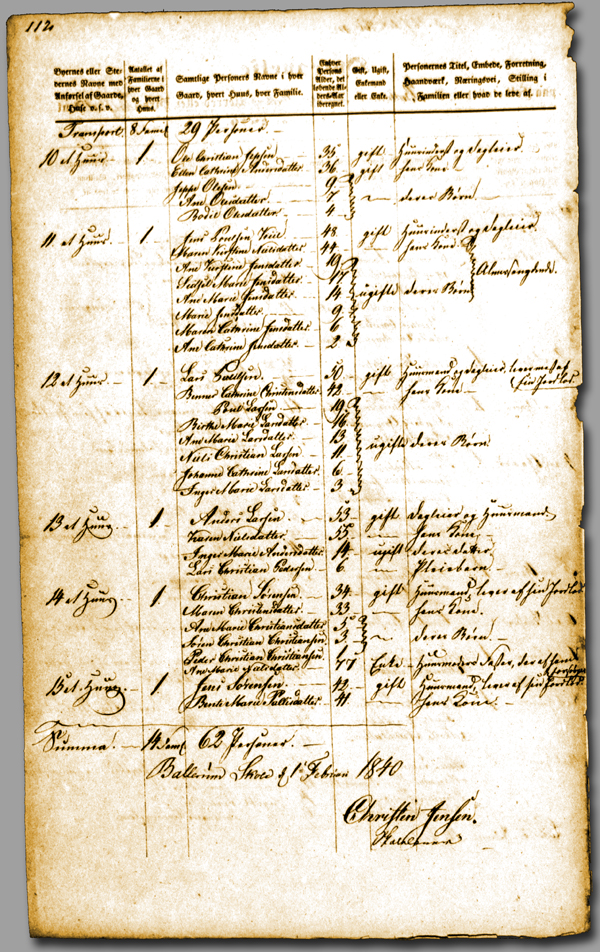 112.
Byernes eller Stedernes Navne med Anførsel af Gaarde, Huse o. s. v.
Antallet af Familierne i hver Gaard og hvert Huus.
Samtlige Personers Navne i hver Gaard, hvert Huus, hver Familie.
Enhver Persons Alder, det løbende Alders-Aar iberegnet.
Gift, Ugift, Enkemand eller Enke.
Personernes Titel, Embede, Forretning, Haandværk, Næringsvei, Stilling i Familien eller hvad de leve af.
Transport 8 Famil 29 Personer
10 et Huus 1 Ole Christian Jepsen 35 gift Huusinderst og Dagleier
Ellen Cathrine Andersdatter 36 gift hans Kone
Jeppe Olesen 9
Ane Olesdatter 7 deres Børn
Bodil Olesdatter 4
11 et Huus 1 Jens 48 gift Huusinderst og Dagleier
Maren Kirstine Nielsdatter 44 hans Kone
Ane Kirstine Jensdatter 19
Sidsel Marie Jensdatter 17 Almosenydende
Ane Marie Jensdatter 14 ugifte deres Børn
Marie Jensdatter 9
Maren Cathrine Jensdatter 6
Ane Cathrine Jensdatter 2
12 et Huus 1 Lars 50 gift Huusmand og Dagleier, lever med af
sin Jordlod
Cathrine Christensdatter 42 hans Kone
Larsen 19
Birthe Marie Larsdatter 16
Ane Marie Larsdatter 13
Niels Christian Larsen 11 ugifte deres Børn
Johanne Cathrine Larsdatter 6
Inger Marie Larsdatter 3
13 et Huus 1 Anders Larsen 53 gift Dagleier og Huusmand
Karen Nielsdatter 55 hans Kone
Inger Marie Andersdatter 14 ugift deres Datter
Lars Christian Pedersen 6 Pleiebarn
14 et Huus 1 Christian Sørensen 34 gift Huusmand, lever af sin Jordlod
Maren Christensdatter 33 hans Kone
Ane Marie Christiansdatter 5
Søren Christian Christiansen 3 deres Børn
Peder Christian Christiansen 1
Ane Marie Nielsdatter 77 Enke Huusmoders Faster, der af ham
forsørges
15 et Huus 1 Jens Sørensen 42 gift Huusmand, lever af sin Jordlod
Bente Marie Pallesdatter 41 hans Kone
Summa 14 Famil 62 Personer
Ballerum Skole d 1 Februar 1840
Christen Jensen.
Skolelærer